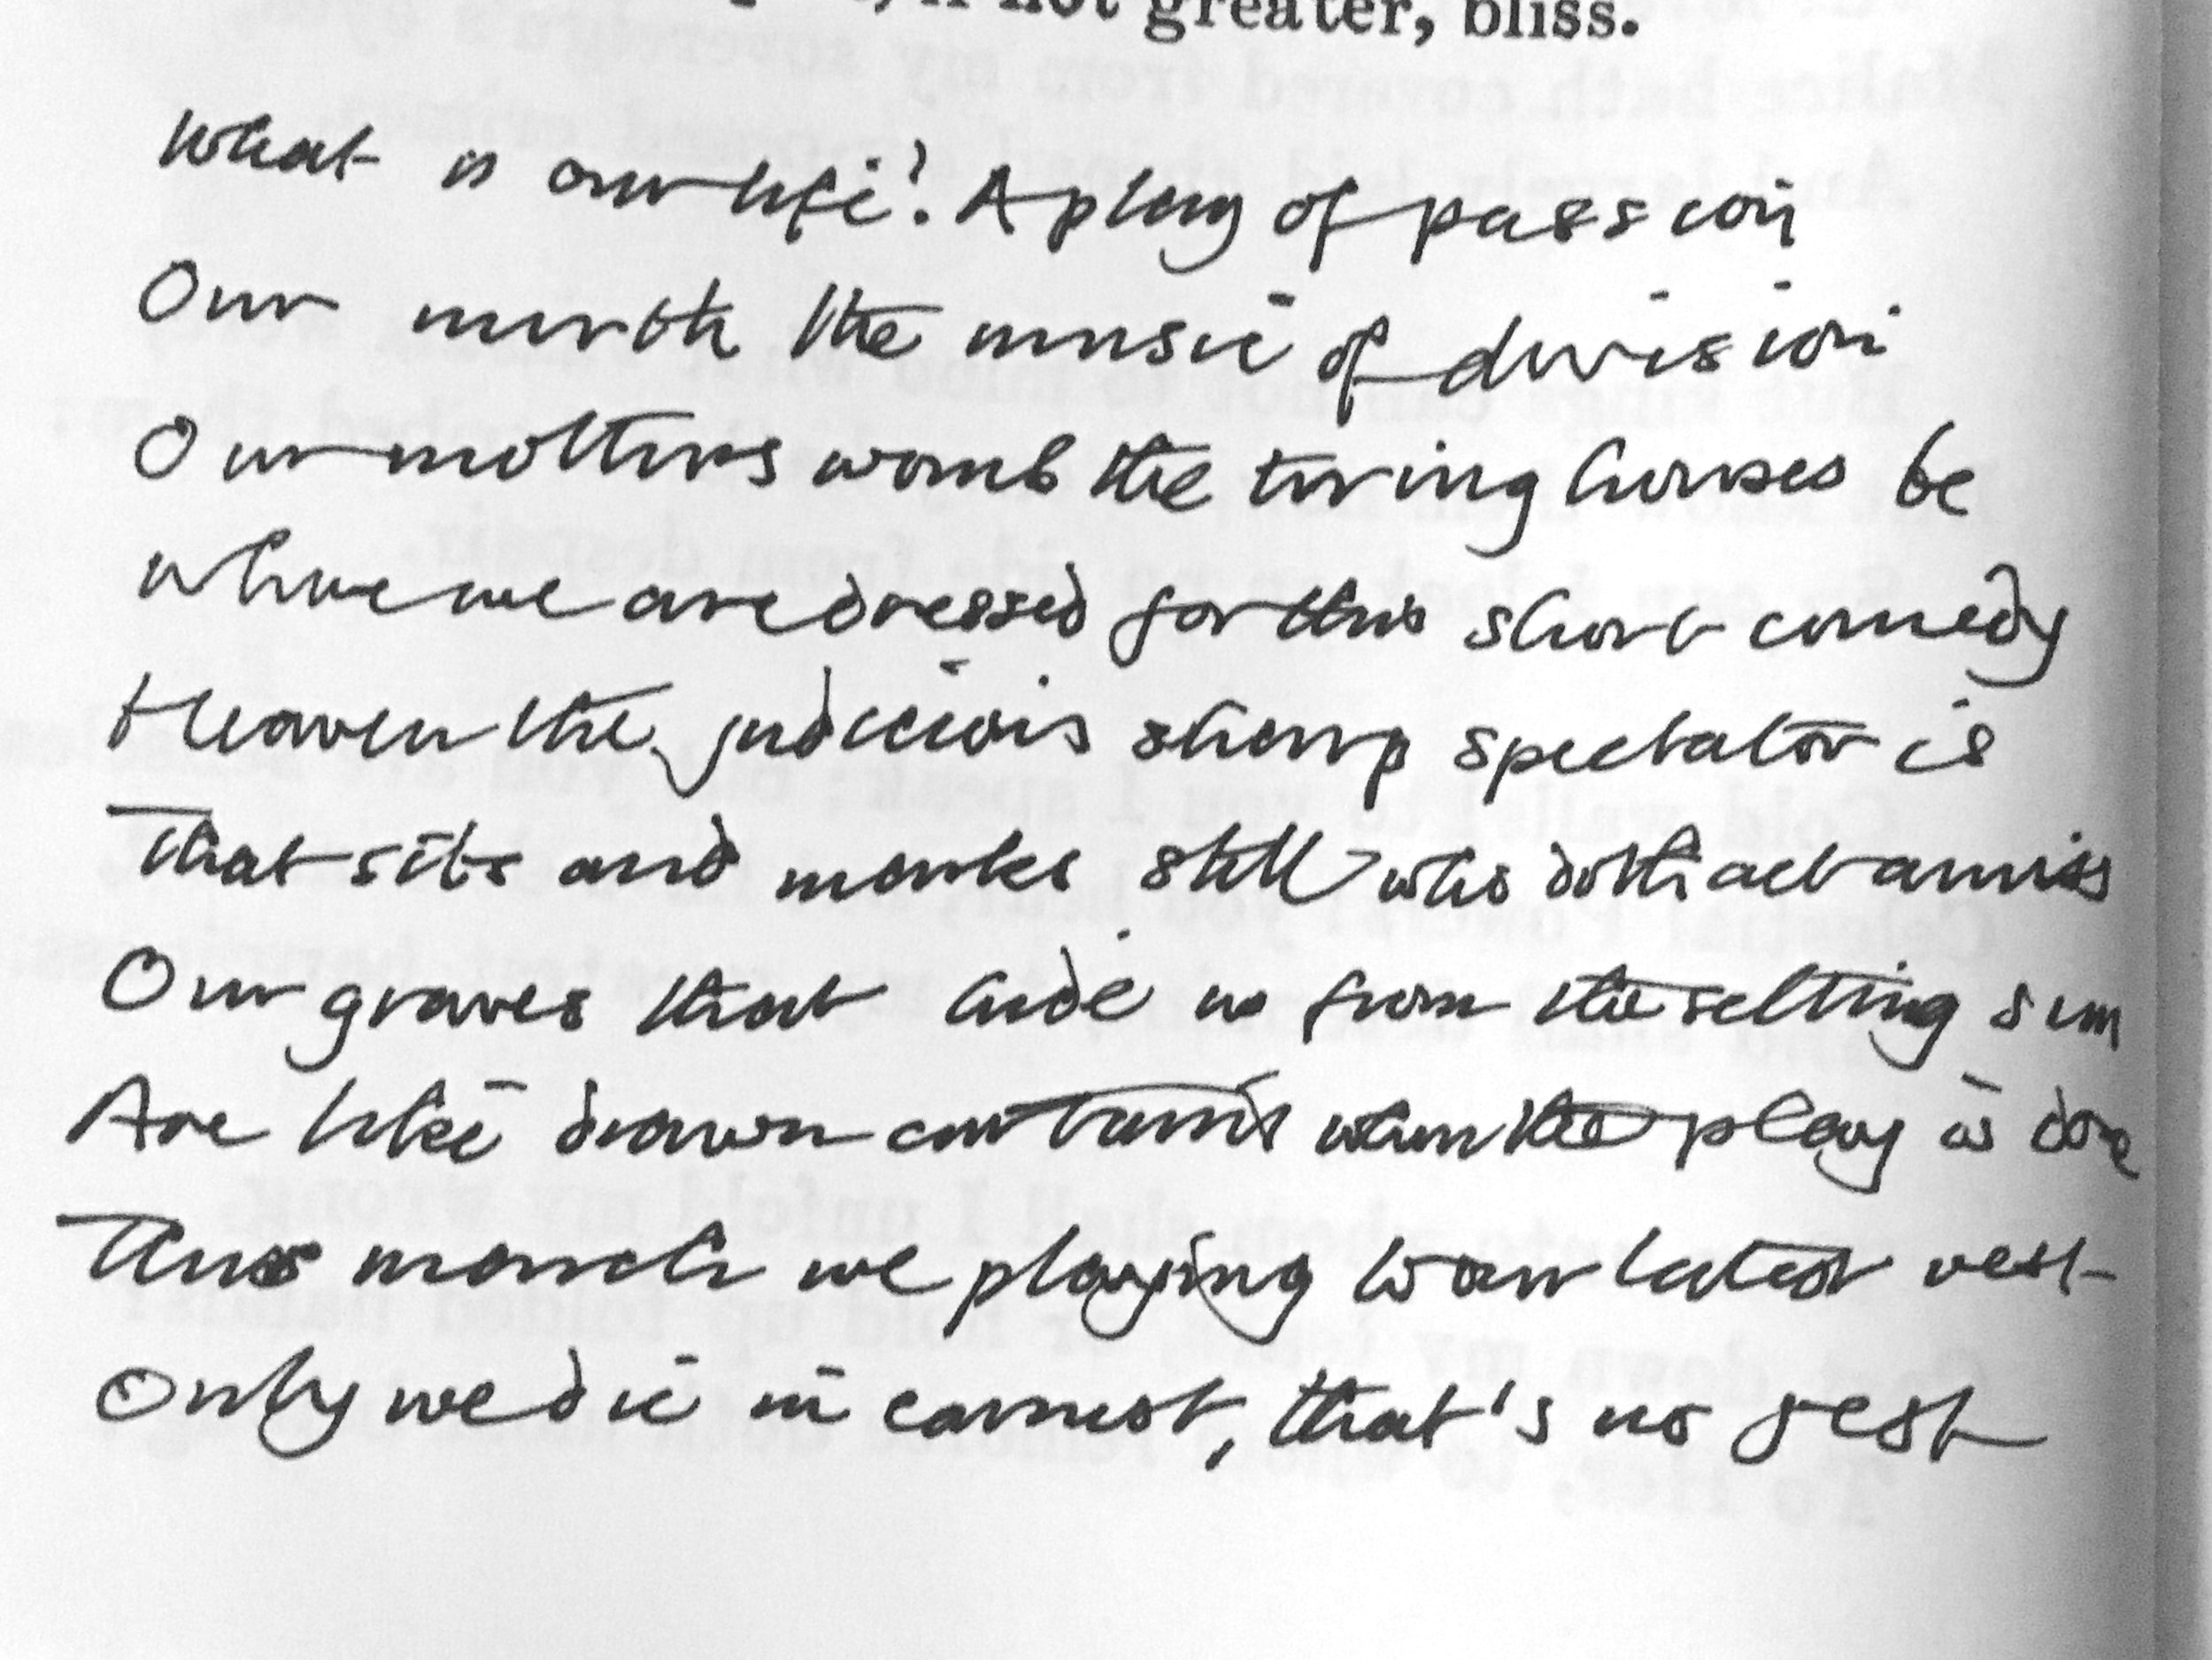 not greater, bliss.
What is our life? A play of passion
Our mirth the music of division
Our mothers womb the tiring houses be
where we are dressed for this short comedy
Heaven the judicious sharp spectator is
That sits and marks still who doth act amiss
Our graves that hide us from the setting sun
Are like drawn curtains when the play is done
Thus march we playing to our latest rest
Only we die in earnest, that's no jest